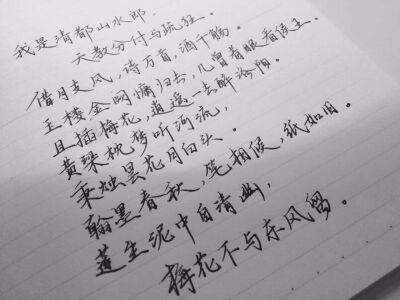 我是清都山水郎，
天教分付与疏狂。
借月支风，诗万首，酒千觞。
玉楼金阙慵归去，几曾着眼看侯王。
且插梅花，逍遥一去醉洛阳。
黄粱枕梦听河流，
秉烛昙花月白头。
翰墨春秋，笔相候，纸如旧。
莲生泥中自清幽，
梅花不与东风留。